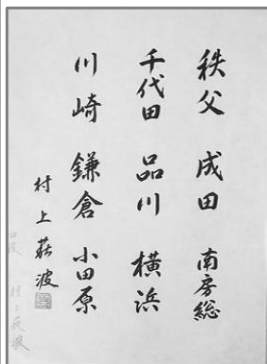 秩父 成田 南房総
千代田 品川 横浜
川崎 鎌倉 小田原
村上萩波